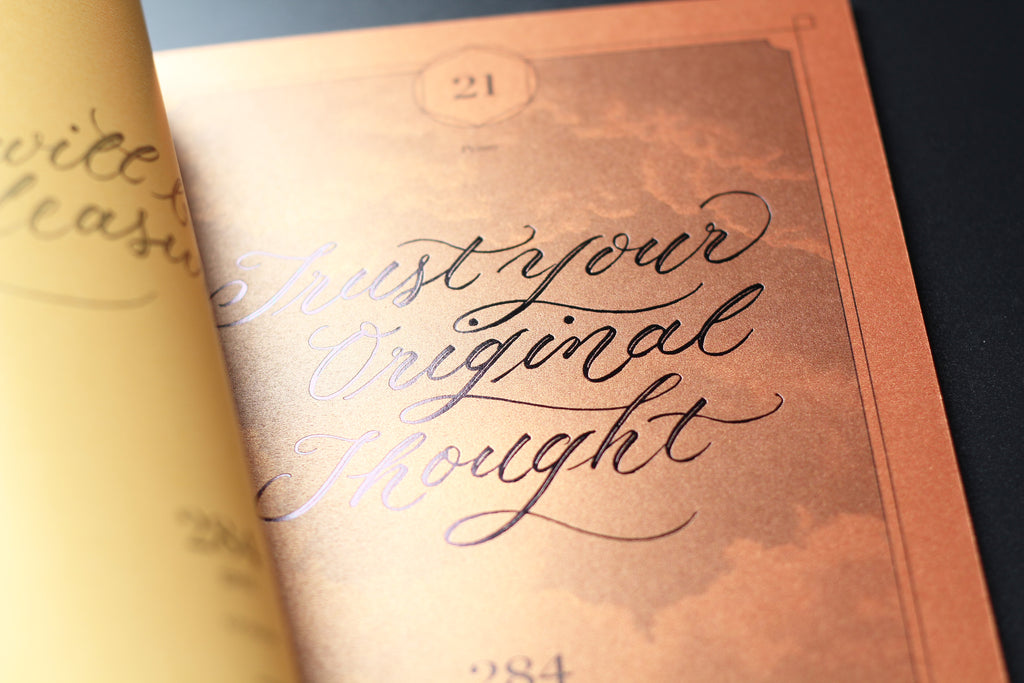 will
21
Trust your
Original
Thought
284